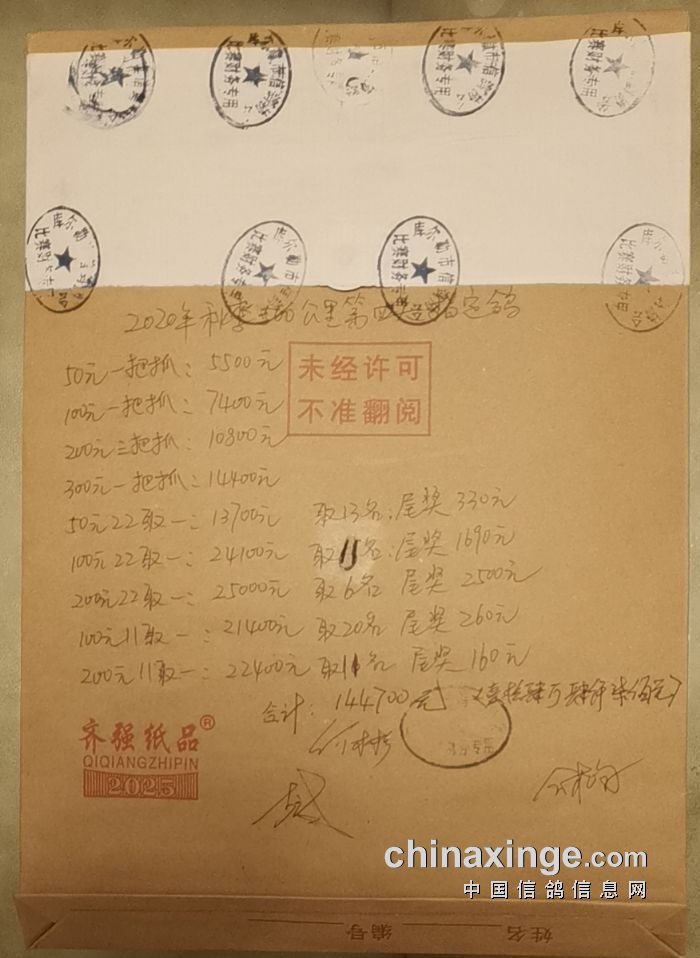 库尔勒市信鸽
比赛财务专用
2020年秋季 公里第四 指定鸽
未经许可
不准翻阅
50元一把抓：5500元
100元一把抓：7400元
200元三把抓：10800元
300元一把抓：14400元
50元22取一：13700元 取13名：尾奖330元
100元22取一：24100元 取 名：尾奖1690元
200元22取一：25000元 取6名 尾奖2500元
100元11取一：21400元 取20名 尾奖260元
200元11取一：22400元 取11名 尾奖160元
合计：144700元 (壹拾肆万肆仟柒佰元)
齐强纸品®
QIQIANGZHIPIN
2025
chinaxinge.com
中国信鸽信息网
姓名 编号